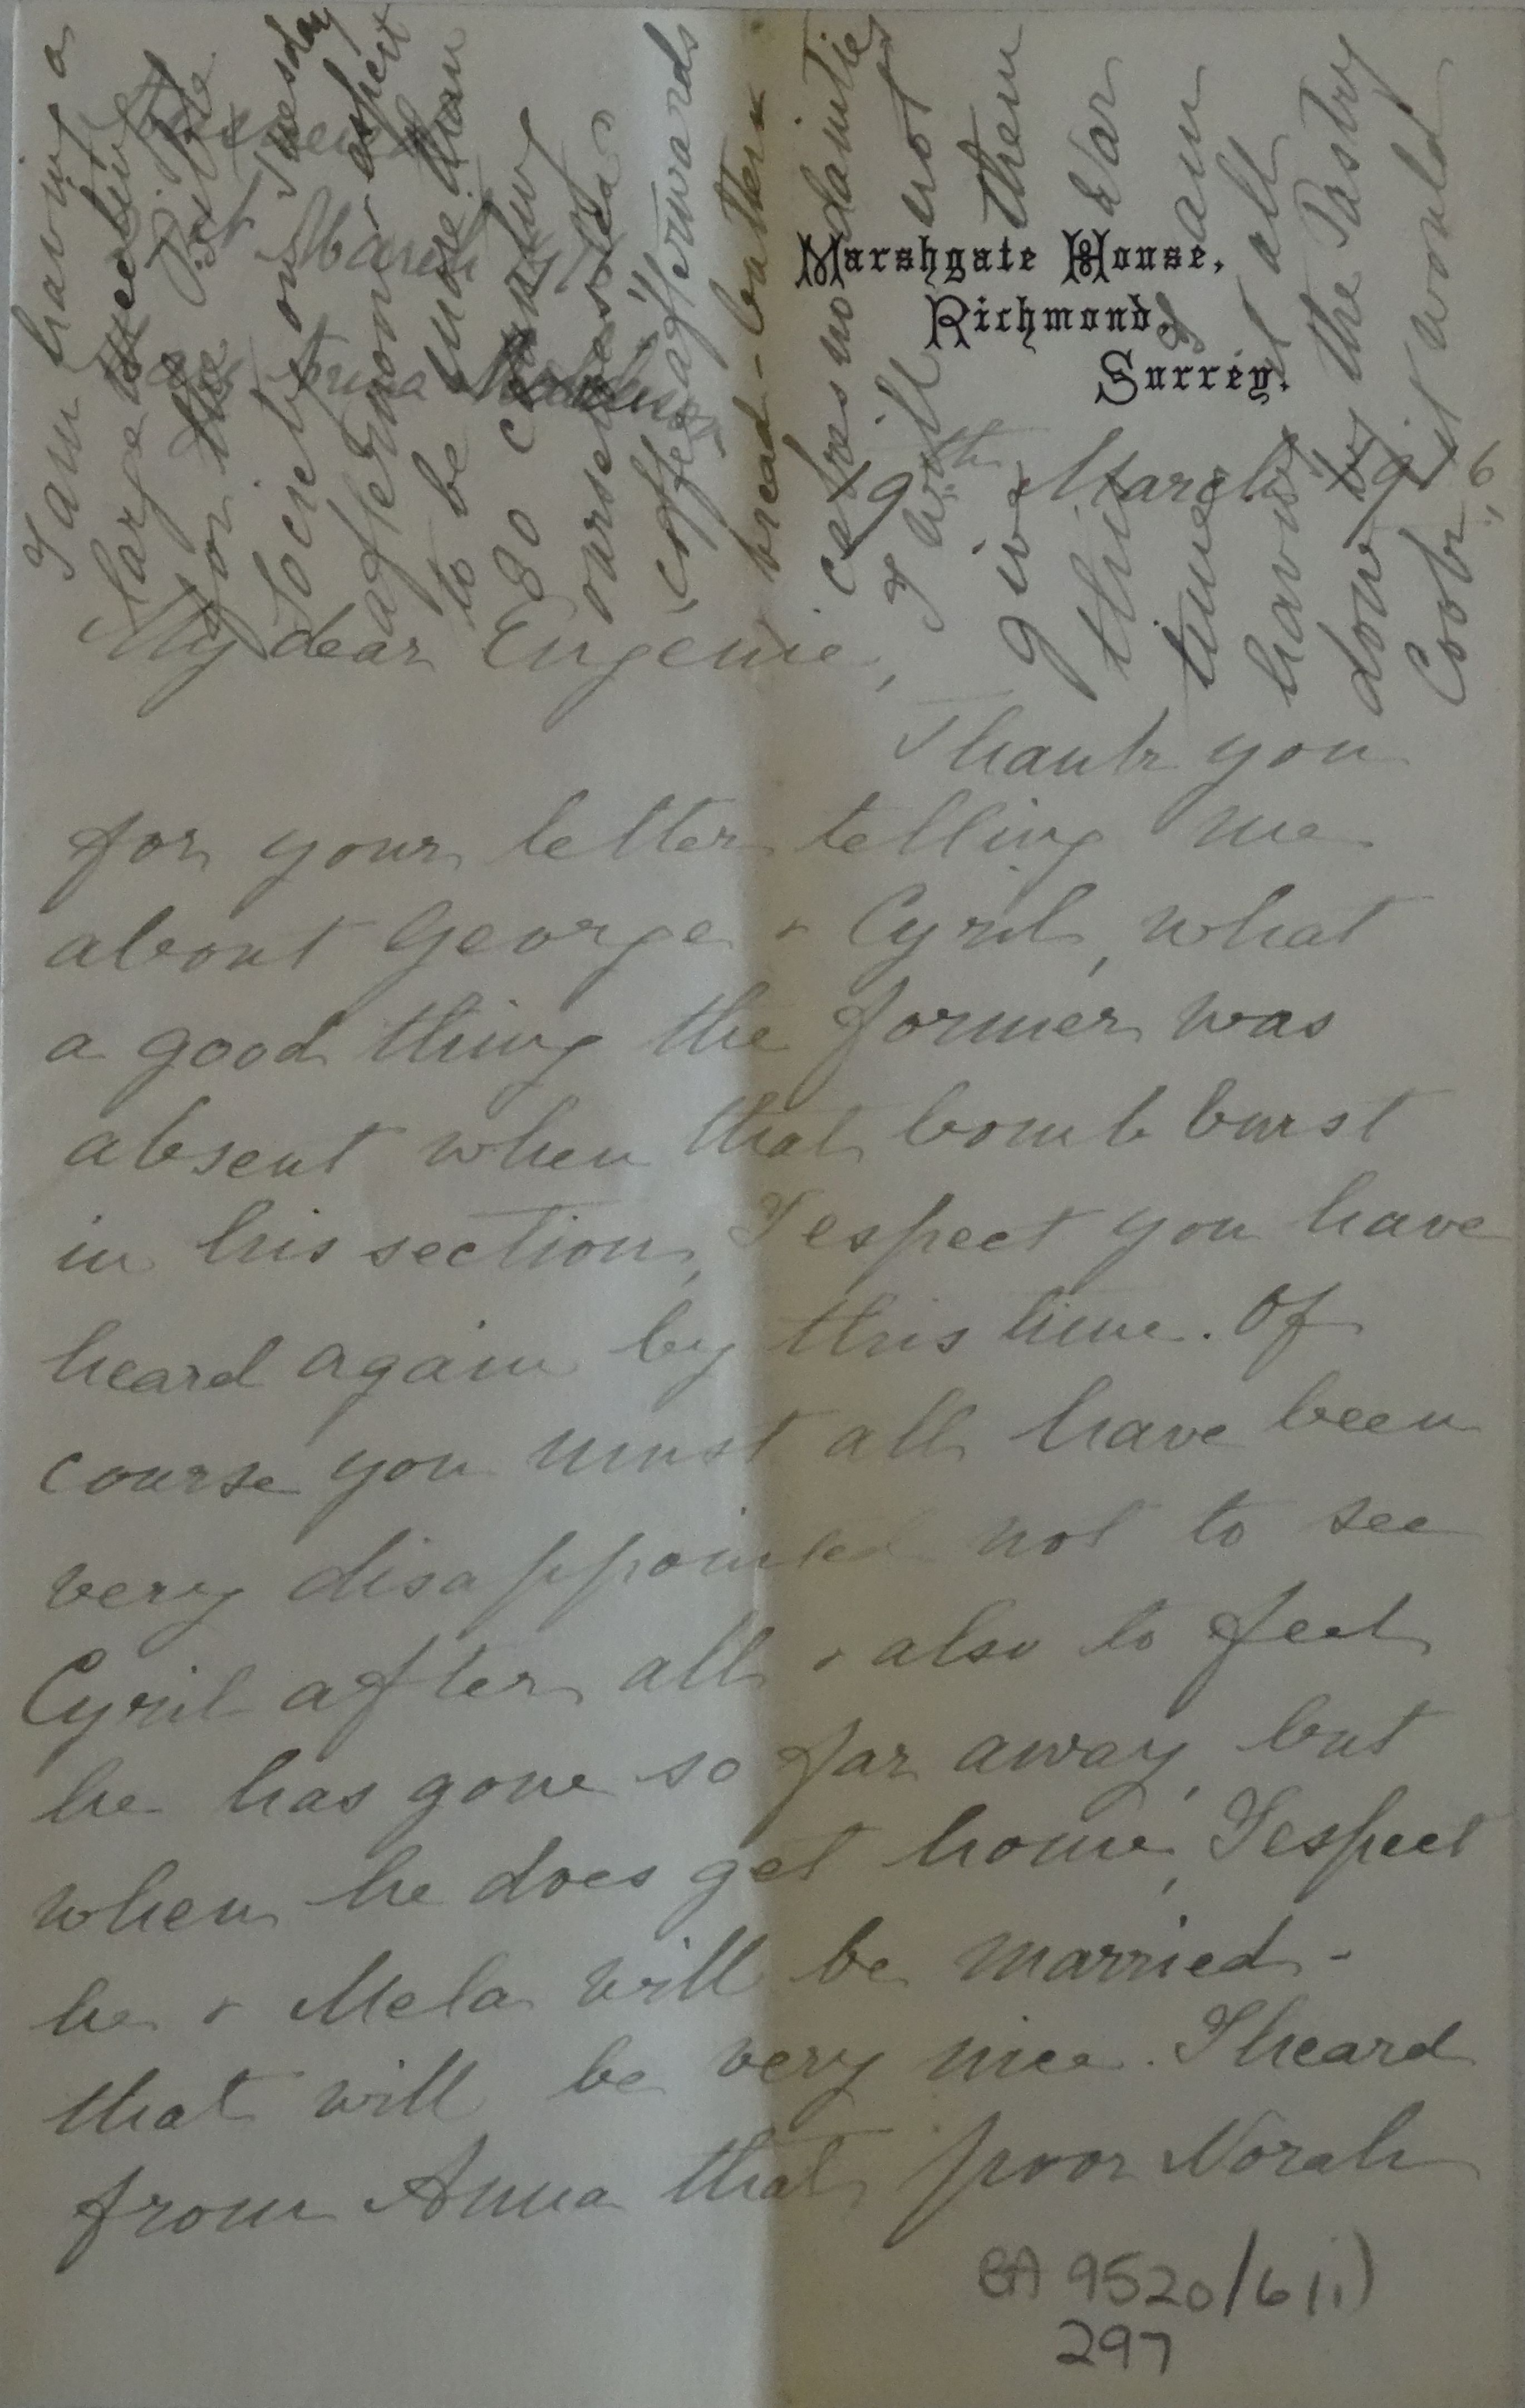 Marshgate House,
Richmond,
Surrey.
19th March 1916
My dear Eugenie,
Thank you
for your letter telling me
about George & Cyril, what
a good thing the former was
absent when that bomb burst
in his section, I espect you have
heard again by this time. Of
course you must all have been
very disappointed not to see
Cyril after all & also to feel
he has gone so far away, but
when he does get home, I espect
he & Mela will be married -
that will be very nice. I heard
from Anna that poor Norah
I am having a
large meeting
for the Bible
Society on Tuesday
afternoon - expect
to be more than
80 counting
ourselves
coffee afterwards
bread-butter &
cakes no dainties
I will not
give them
this War
time. I am
having it all
done by the Pastry
Cook", it would
March
Anna
BA 9520/6(i)
297